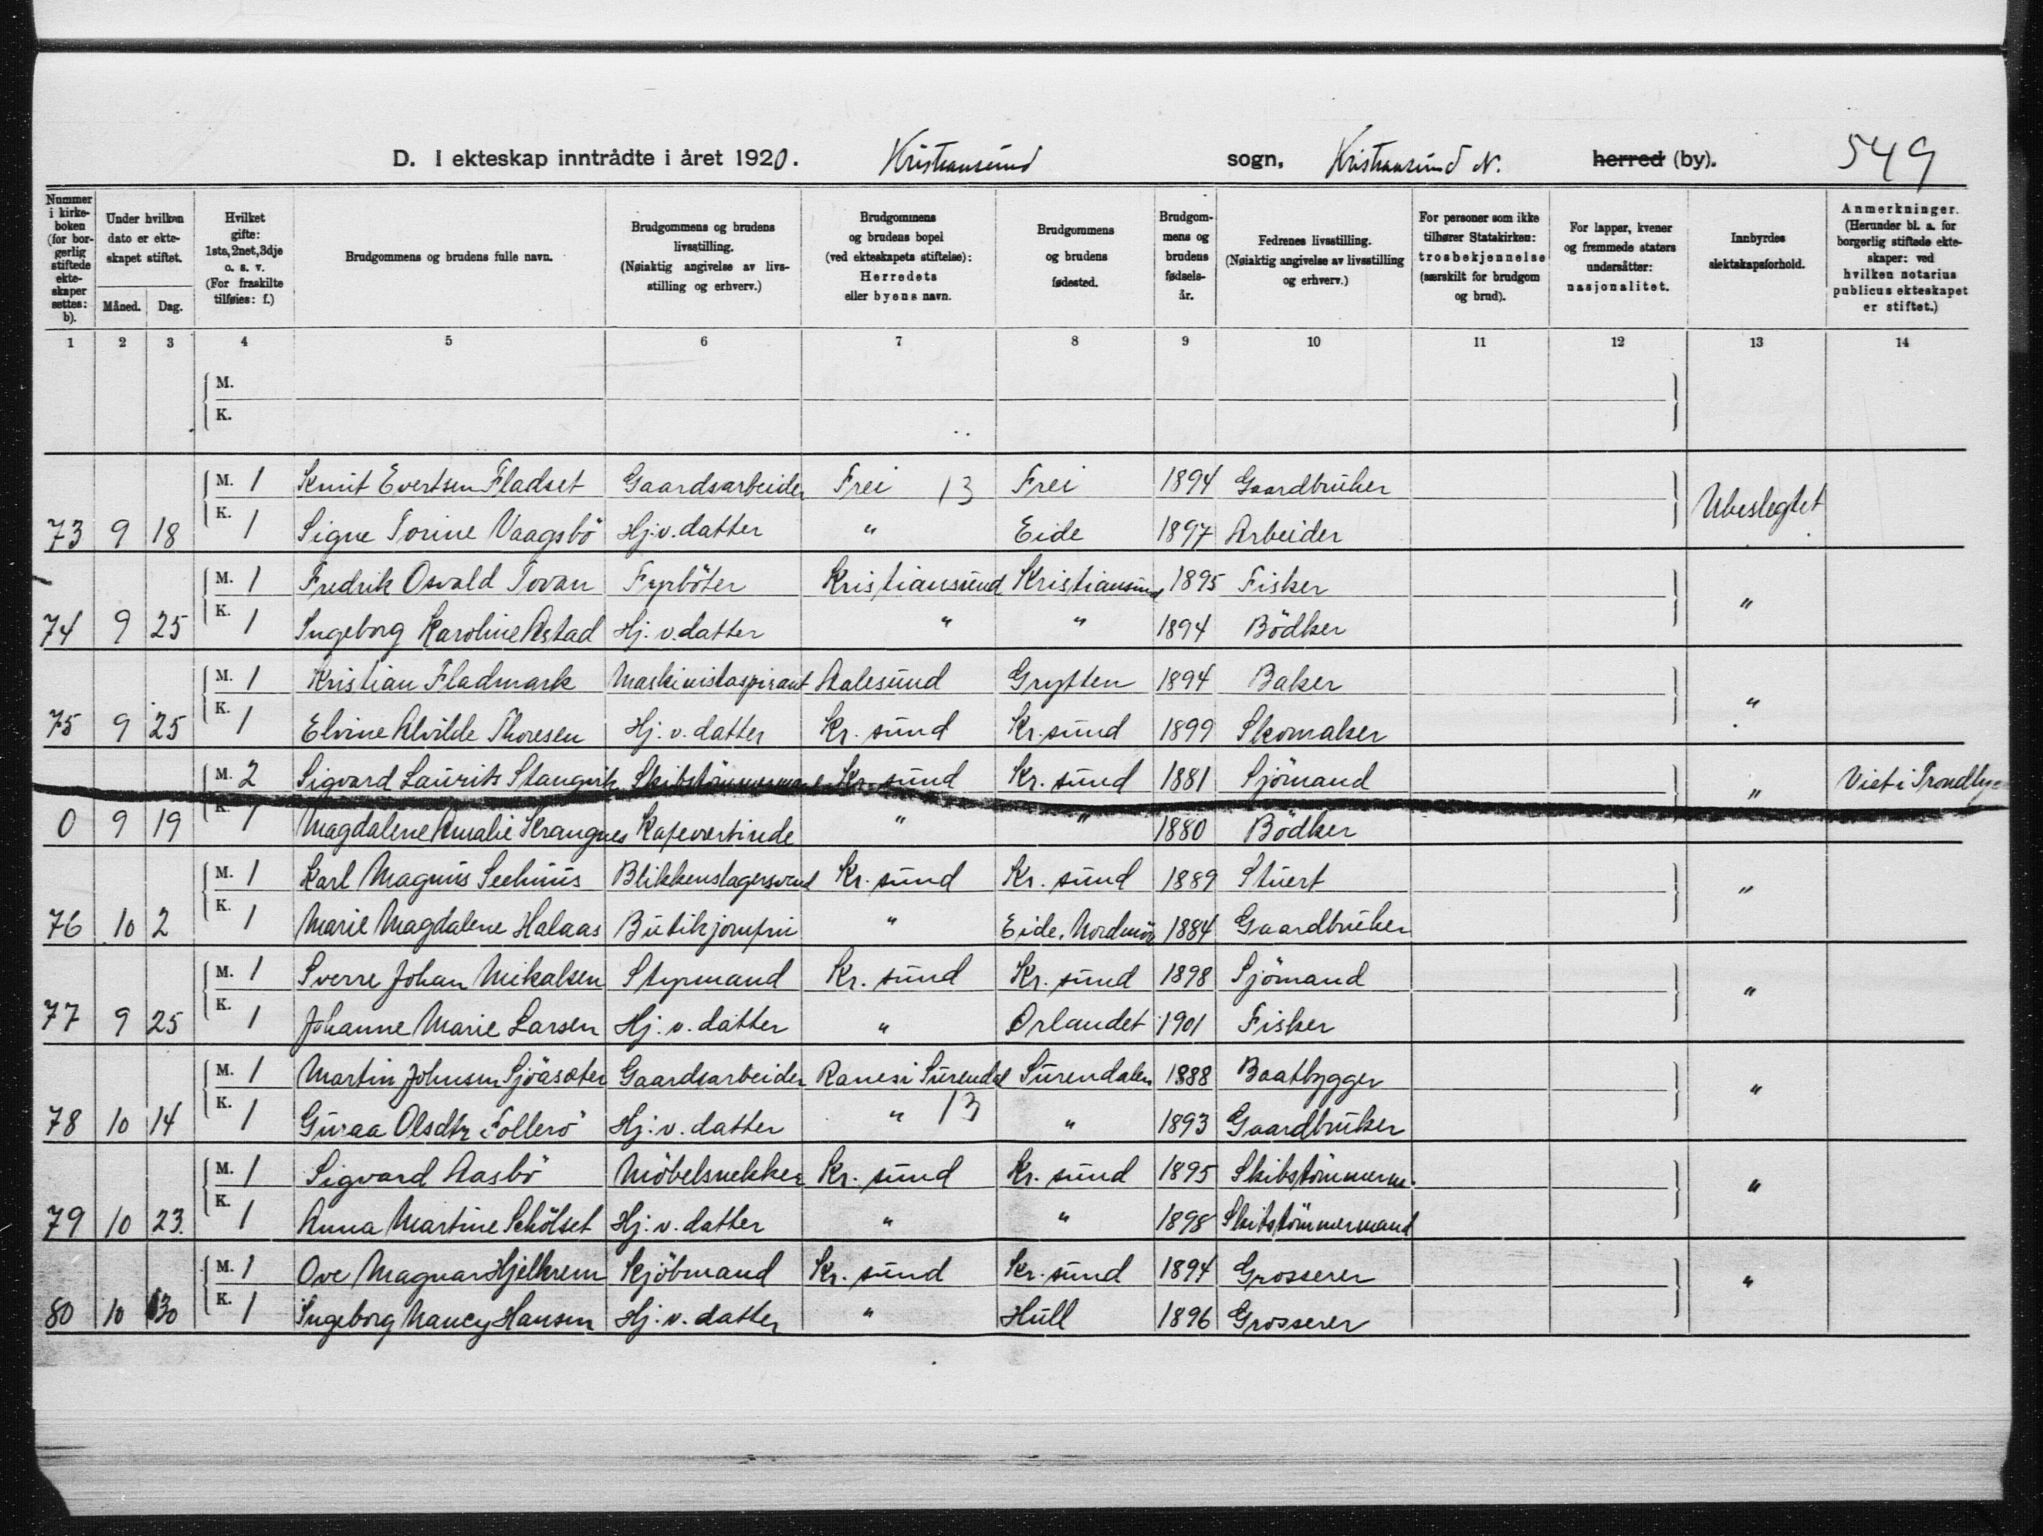 D. I ekteskap inntrådte i året 1920. Kristiansund sogn, Kristiansund N. herred (by). 549
Nummer i kirke-boken (for bor-gerlig stiftede ekte-skaper settes: b).
Under hvilken dato er ekte-skapet stiftet.
Måned. Dag.
Hvilket gifte: 1ste, 2net, 3dje o. s. v. (For fraskilte tilføies: f.)
Brudgommens og brudens fulle navn.
Brudgommens og brudens livsstilling. (Nøiaktig angivelse av livs-stilling og erhverv.)
Brudgommens og brudens bopel (ved ekteskapets stiftelse): Herredets eller byens navn.
Brudgommens og brudens fødested.
Brudgom-mens og brudens fødsels-år.
Fedrenes livsstilling. (Nøiaktig angivelse av livsstilling og erhverv.)
For personer som ikke tilhører Statskirken: trosbekjennelse (særskilt for brudgom og brud).
For lapper, kvener og fremmede staters undersåtter: nasjonalitet.
Innbyrdes slektskapsforhold.
Anmerkninger. (Herunder bl. a. for borgerlig stiftede ekte-skaper: ved hvilken notarius publicus ekteskapet er stiftet.)
1 2 3 4 5 6 7 8 9 10 11 12 13 14
M.
K.
M. 1 Knut Evertsen Fladset Gaardsarbeider Frei 13 Frei 1894 Gaardbruker Ubeslegtet
73 9 18 K. 1 Signe Torine Vaagsbö Hj. v. datter " Eide 1897 Arbeider
M. 1 Fredrik Osvald Tovan Fyrböter Kristiansund Kristiansund 1895 Fisker "
74 9 25 K. 1 Ingeborg Karoline Astad Hj. v. datter " " 1894 Bödker
M. 1 Kristian Fladmark Maskinistaspirant Aalesund Grytten 1894 Baker "
75 9 25 K. 1 Elvine Alvilde Thoresen Hj. v. datter Kr. sund Kr. sund 1899 Skomaker
M. 2 Sigvard Laurits Stangvik Skibstömmermand Kr. sund Kr. sund 1881 Sjömand " Viet i Trondhjem
0 9 19 K. 1 Magdalene Amalie Krangnes Kafeværtinde " " 1880 Bödker
M. 1 Karl Magnus Seehuus Blikkenslagersvend Kr. sund Kr. sund 1889 Stuert "
76 10 2 K. 1 Marie Magdalene Halaas Butikjomfru " Eide, Nordmör 1884 Gaardbruker
M. 1 Sverre Johan Mikalsen Styrmand Kr. sund Kr. sund 1898 Sjömand "
77 9 25 K. 1 Johanne Marie Larsen Hj. v. datter " Ørlandet 1901 Fisker
M. 1 Martin Johnsen Sjöasæter Gaardsarbeider Ranes i Surendal Surendalen 1888 Baatbygger "
78 10 14 K. 1 Olsdtr Follerö Hj. v. datter " 13 " 1893 Gaardbruker
M. 1 Sigvard Aasbö Möbelsnekker Kr. sund Kr. sund 1895 Skibstömmerm. "
79 10 23. K. 1 Anna Martine Schölset Hj. v. datter " " 1898 Skibstömmermand
M. 1 Ove Magnar Hjelkrem Kjöbmand Kr. sund Kr. sund 1894 Grosserer "
80 10 30 K. 1 Ingeborg Nancy Hansen Hj. v. datter " Hull 1896 Grosserer